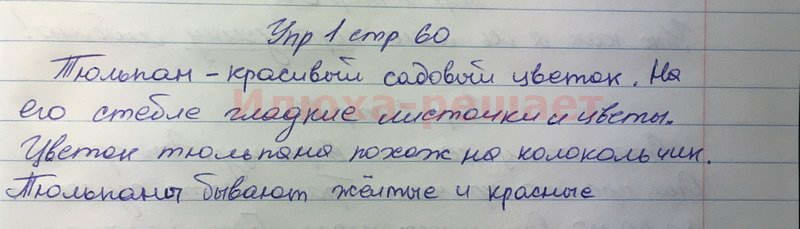 Упр 1 стр 60
Тюльпан - красивый садовый цветок. На
его стебле гладкие листочки и цветы.
Илюха-решает
Цветок тюльпана похож на колокольчик.
Тюльпаны бывают жёлтые и красные